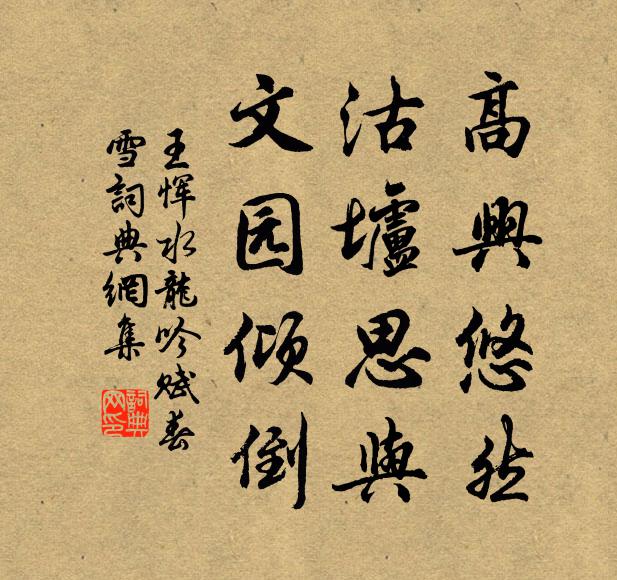 高興悠然
沽壚思與
文园傾倒
王恽水龍吟賦春
雪詞典網集
詞典
网印